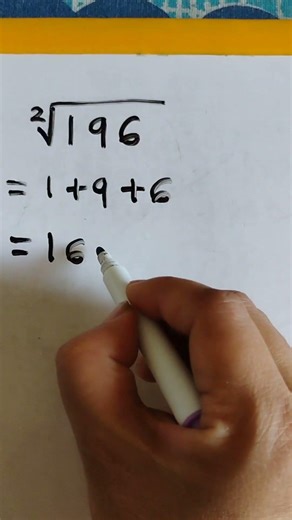 ²√196
= 1+9+6
= 16